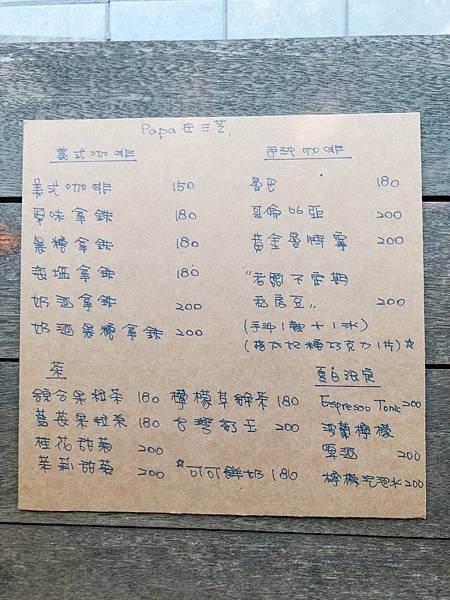 Papa在三芝.
義式咖啡
義式咖啡 150
原味拿鉄 180
黑糖拿鉄 180
海塩拿鉄 180
奶酒拿鉄 200
奶酒黑糖拿鉄 200
手沖咖啡
曼巴 180
哥倫比亞 200
黃金曼特寧 200
"老闆不定期
私房豆" 200
(手沖1軟+1冰)
(搭太妃糖巧克力1片)☆
茶
綜合果粒茶 180
藍莓果粒茶 180
桂花甜菊 200
茉莉甜菊 200
檸檬草綠茶 180
台灣紅玉 200
☆可可鮮奶 180
夏日限定
Espresso Tonic 200
檸檬
啤酒 200
檸檬气泡水 200